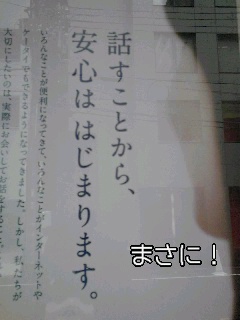 話すことから、
安心は はじまります。
いろんなことが便利になってきて、いろんなことがインターネットや
ケータイでもできるようになってきました。しかし、私たちが
大切にしたいのは、実際にお会いしてお話をすること
まさに！